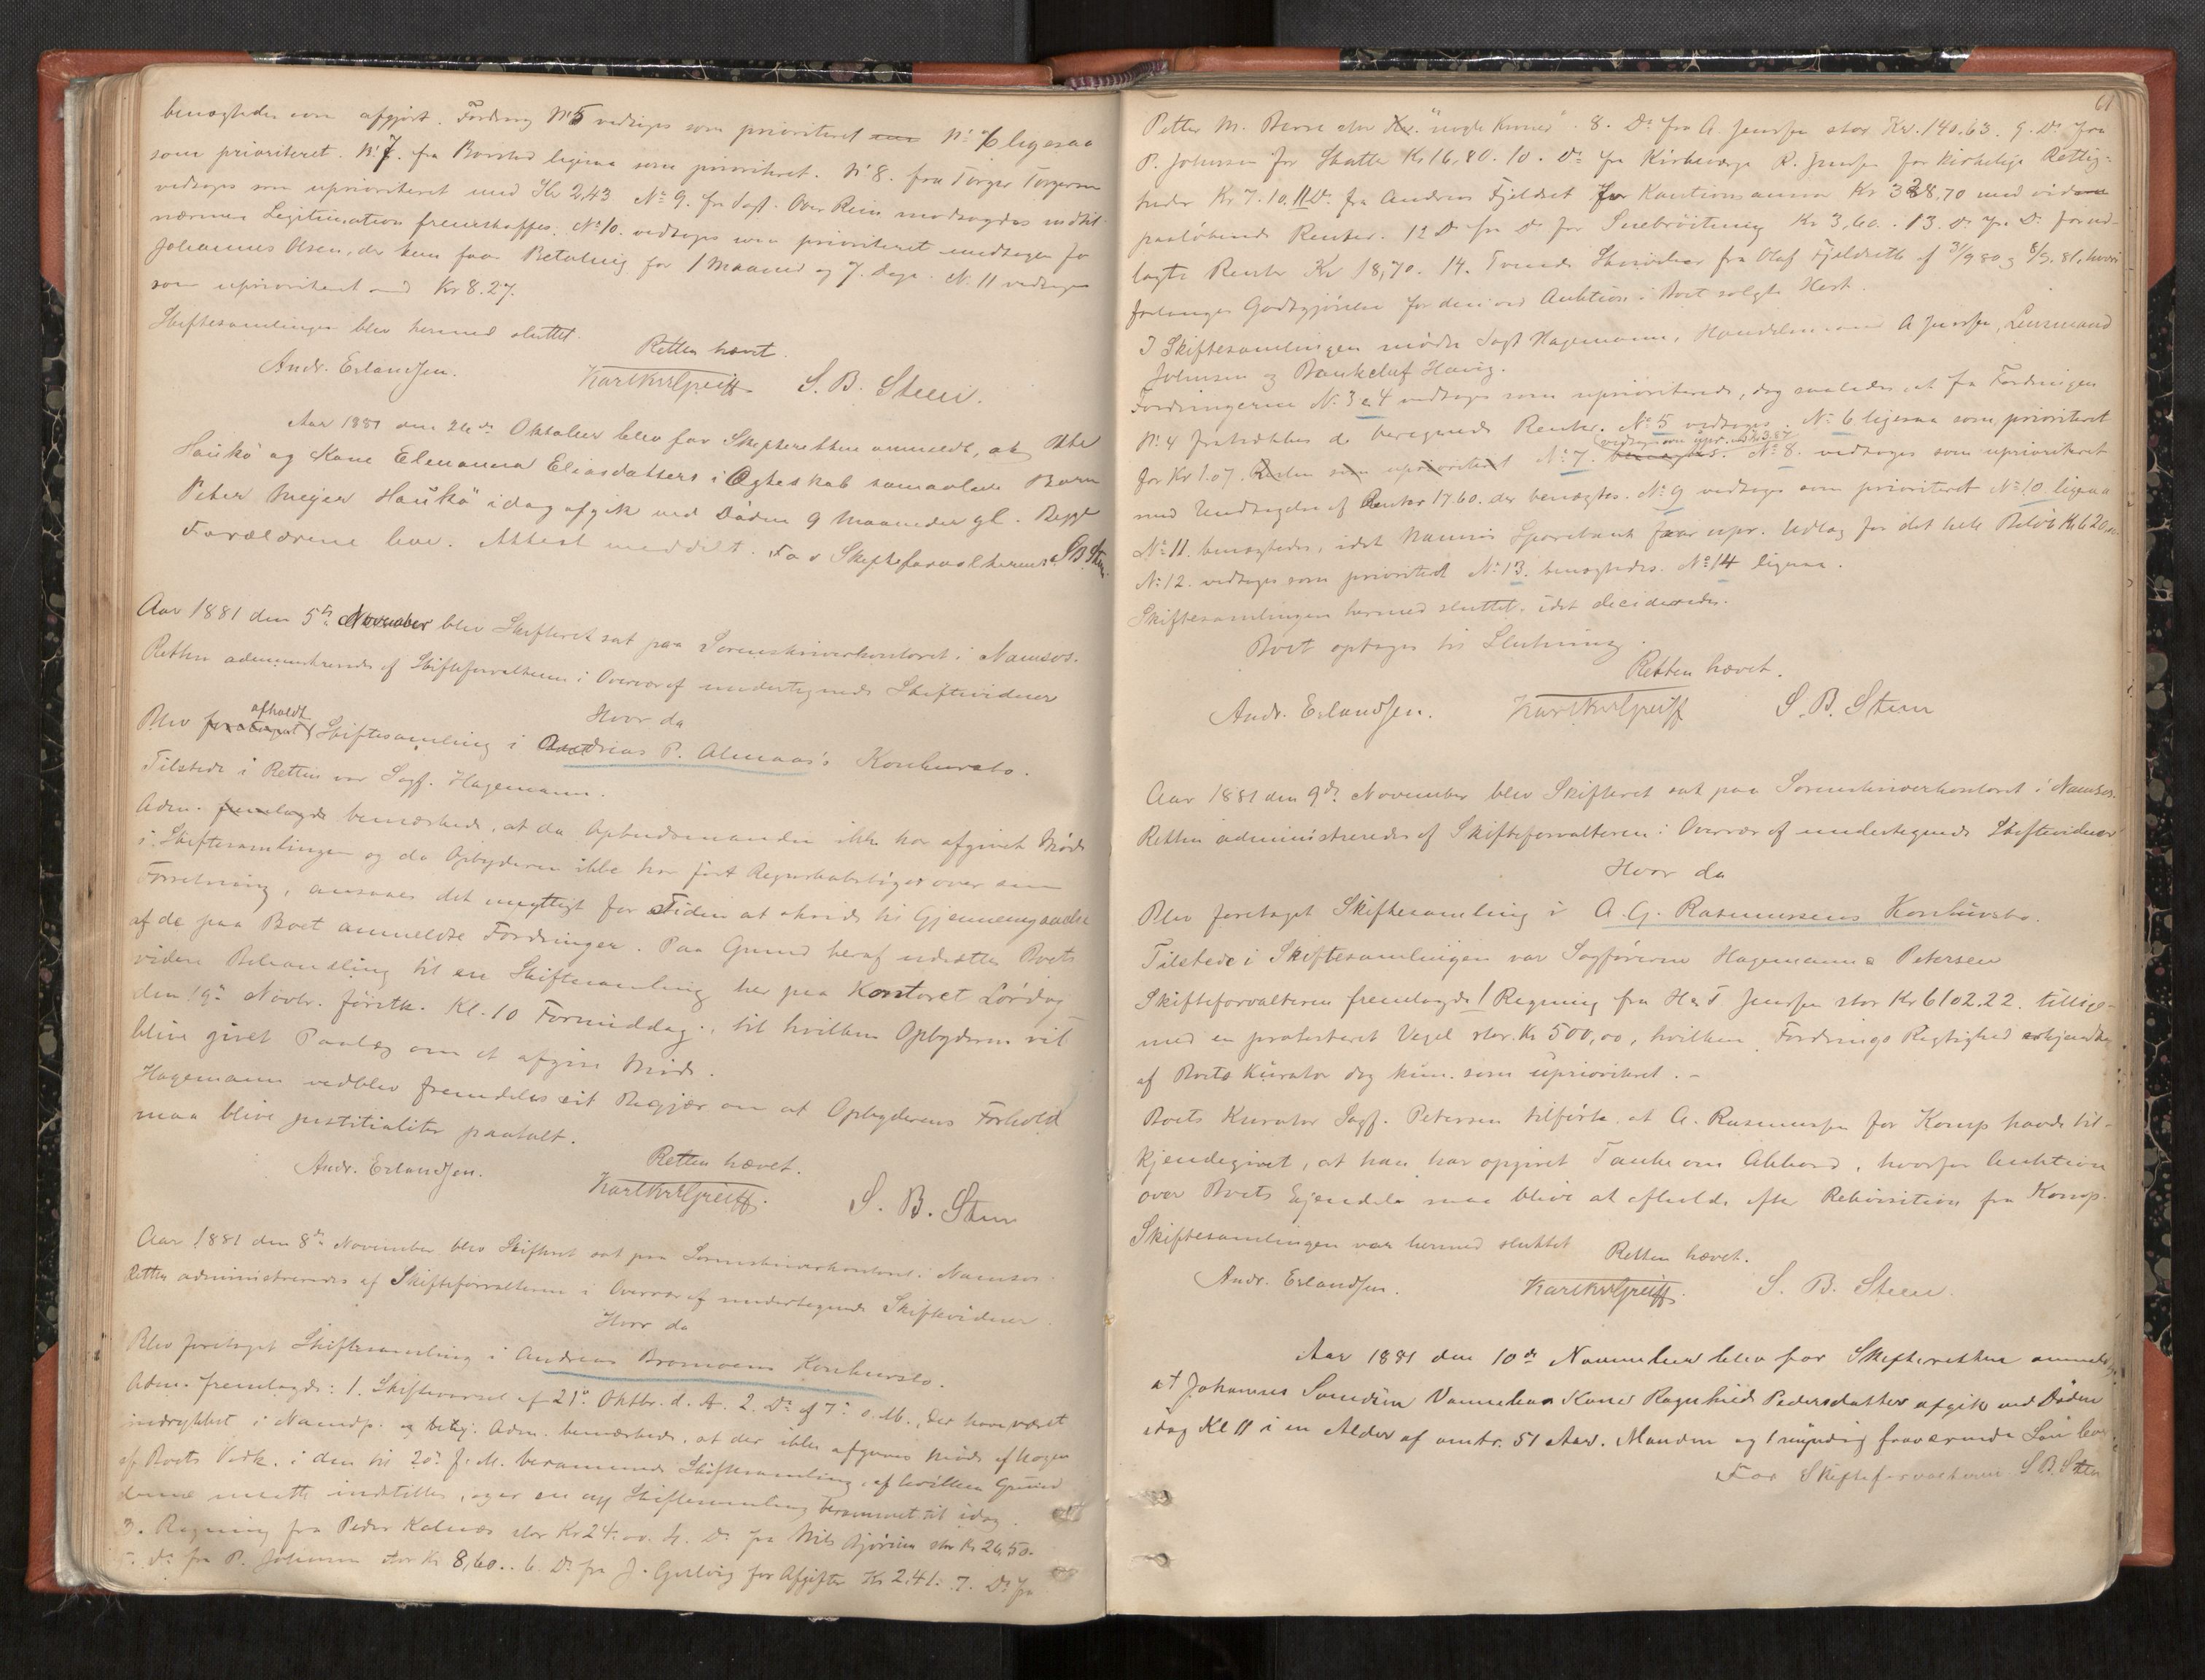 benægtedes som afgjort. Fordring No 5 vedtages som prioriteret No 6 ligesaa
som prioriteret. No 7. fra Borstad ligesaa som prioriteret. No 8. fra Torger Torgersen
vedtages som uprioriteret med Kr 2,43 No 9. fra Sagf. Over Rein modsagdes indtil
nærmere Legitimation fremskaffes. No 10. vedtages som prioriteret undtagen for
Johannes Olsen, der kun faar Betaling for 1 Maaned og 7 Dage. No 11 vedtages
som uprioriteret med Kr 8.27.
Skiftesamlingen blev hermed sluttet.
Retten hævet.
Andr. Erlandsen. Karl Kr. Greiff S. B. Steen.
Aar 1881 den 26de Oktober blev for Skifteretten anmeldt, at
Haukø og Kone Elenanna Eliasdatters i Ægteskab sammavlede Barn
Peter Meyer Haukø idag afgik ved Døden 9 Maaneder gl. Begge
Forældrene leve. Attest meddelt. For Skifteforvalteren S B Steen
Aar 1881 den 5te November blev Skifteret sat paa Sorenskriverkontoret i Namsos.
Retten administreredes af Skifteforvalteren i Overvær af undertegnede Skiftevidner
Hvor da
Blev foretaget afholdt Skiftesamling i Andreas P. Almaas's Konkursbo.
Tilstede i Retten var Sagf. Hagemann.
Adm. fremlagde bemærkede, at da Opbudsmanden ikke har afgivet Møde
i Skiftesamlingen og da Opbyderen ikke har ført Regnskabsbøger over sin
Forretning, ansaaes det unyttigt for Tiden at skride til Gjennemgaaelse
af de paa Boet anmeldte Fordringer. Paa Grund heraf udsattes Boets
videre Behandling til en Skiftesamling her paa Kontoret Lørdag
den 19de Novbr. førstk. Kl. 10 Formiddag., til hvilken Opbyderen vil
blive givet Paalæg om at afgive Møde.
Hagemann vedblev fremdeles sit Begjær om at Opbyderens Forhold
maa blive justitialiter paatalt.
Retten hævet.
Andr. Erlandsen. Karl Kr. Greiff. S. B. Steen
Aar 1881 den 8de November blev Skifteret sat paa Sorenskriverkontoret i Namsos.
Retten administreredes af Skifteforvalteren i Overvær af undertegnede Skiftevidner.
Hvor da
Blev foretaget Skiftesamling i Andreas Bromoens Konkursbo.
Adm. fremlagde: 1. Skiftevarsel af 21de Oktbr. d. A. 2. Do af 7de d. M., der have været
indrykket i Namdp. og bekj. Adm. bemærkede, at der ikke afgaves Møde af Nogen
af Boets Vedk. i den til 20de f. M. berammede Skiftesamling, af hvilken Grund
denne maatte indstilles, og er en ny Skiftesamling berammet til idag.
3. Regning fra Peder Kalnes stor Kr 24.00. 4. Do fra Nils Bjørum stor Kr 26,50.
5. Do fra P. Johnsen stor Kr 8,60. 6. Do fra J. Gulvig for Afgifter Kr 2.41. 7. Do fra
61
Petter M. Berre stor Kr. "nogle Kroner". 8. Do fra A. Jenssen stor Kr. 140.63. 9. Do fra
P. Johnsen for Skatter Kr 16,80. 10. Do fra Kirkeværge R. Jenssen for kirkelige Rettig-
heder Kr 7.10. 11 Do. fra Andreas Fjeldset for Kautionsansvar Kr 338,70 med videre
paaløbende Renter. 12 Do fra Do for Snebrøitning Kr 3,60. 13. Do fra Do for ud-
lagte Renter Kr 18,70. 14. Tvende Skrivelser fra Olaf Fjeldseth af 3/9 80 og 8/9. 81, hvori
forlanges Godtgjørelse for den ved Auktion i Boet solgte Hest.
I Skiftesamlingen mødte Sagf Hagemann, Handelsmand A Jenssen, Lensmand
Johnsen og Bankchef Havig.
Fordringerne No 3 & 4 vedtages som uprioriterede, dog saaledes at fra Fordringen
No 4 fratrækkes de beregnede Renter. No 5 vedtages. No 6 ligesaa som prioriteret
for Kr 1.07. Resten som uprioriteret No 7. benægtes. vedtages som upr. med Kr 3,84 No 8. vedtages som uprioriteret
med Undtagelse af Renter 17.60. der benægtes. No 9 vedtages som prioriteret No 10 ligesaa
No 11. benægtedes, idet Namsos Sparebank faar upr. Udlæg for det hele Beløb Kr 620,00
No 12. vedtages som prioriteret No 13. benægtedes. No 14 ligesaa.
Skiftesamlingen hermed sluttet, idet decideredes:
Boet optages til Slutning.
Retten hævet.
Andr. Erlandsen. Karl Kr. Greiff S. B. Steen
Aar 1881 den 9de November blev Skifteret sat paa Sorenskriverkontoret i Namsos.
Retten administreredes af Skifteforvalteren i Overvær af undertegnede Skiftevidner
Hvor da
Blev foretaget Skiftesamling i A. G. Rasmussens Konkursbo.
Tilstede i Skiftesamlingen var Sagførerne Hagemann & Petersen
Skifteforvalteren fremlagde 1 Regning fra H & T. Jenssen stor Kr 6102.22. tillige-
med en protesteret Vexel stor Kr 500,00, hvilken Fordrings Rigtighed erkjendtes
af Boets Kurator dog kun som uprioriteret. -
Boets Kurator Sagf. Petersen tilførte, at A. Rasmussen for Komp havde til-
kjendegivet, at han har opgivet Tanke om Akkord, hvorfor Auktion
over Boets Eiendele maa blive at afholde efter Rekvisition fra Komp.
Skiftesamlingen var hermed sluttet Retten hævet.
Andr. Erlandsen. Karl Kr. Greiff. S. B. Steen.
Aar 1881 den 10de November blev for Skifteretten anmeldt,
at Johannes Samdeim Vannebos Kone Ragnhild Pedersdatter afgik ved Døden
idag Kl 11 i en Alder af omtr. 51 Aar. Manden og 1 myndig fraværende Søn lever
For Skifteforvalteren S B. Steen